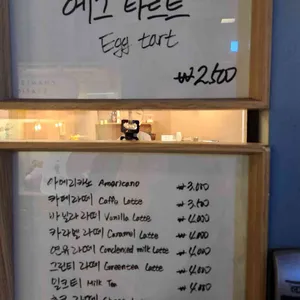 에그 타르트
Egg tart
₩2500
아메리카노 Americano ₩3.000
카페라떼 Caffe Latte ₩3.500
바닐라라떼 Vanilla Latte ₩4.000
카라멜라떼 Caramel Latte ₩4.000
연유라떼 Condensed milk Latte ₩4.000
그린티라떼 Greentea Latte ₩4.000
밀크티 Milk Tea ₩4.000